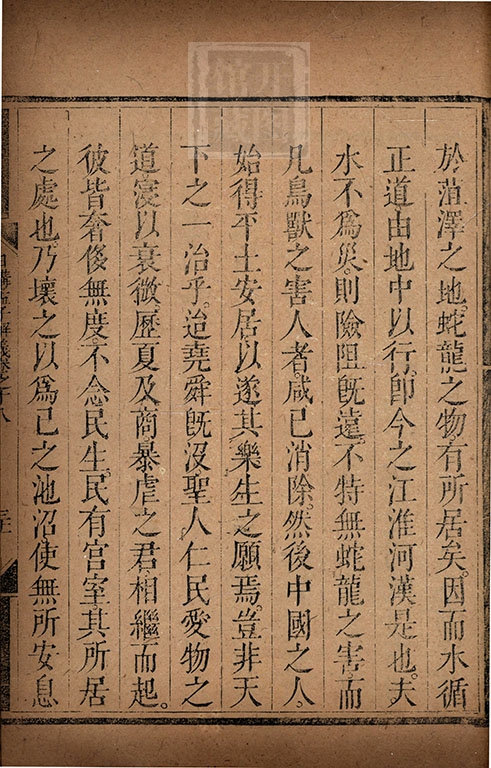 於菹澤之地。蛇龍之物有所居矣。因而水循
正道由地中以行。卽今之江淮河漢是也。夫
水不爲災。則險阻旣遠。不特無蛇龍之害。而
凡鳥獸之害人者。咸已消除。然後中國之人。
始得平土安居。以遂其樂生之願焉。豈非天
下之一治乎。迨堯舜旣沒。聖人仁民愛物之
道寖以衰微。歷夏及商暴虐之君。相繼而起。
彼皆奢侈無度。不念民生。民有宮室其所居
之處也。乃壞之以爲己之池沼使無所安息